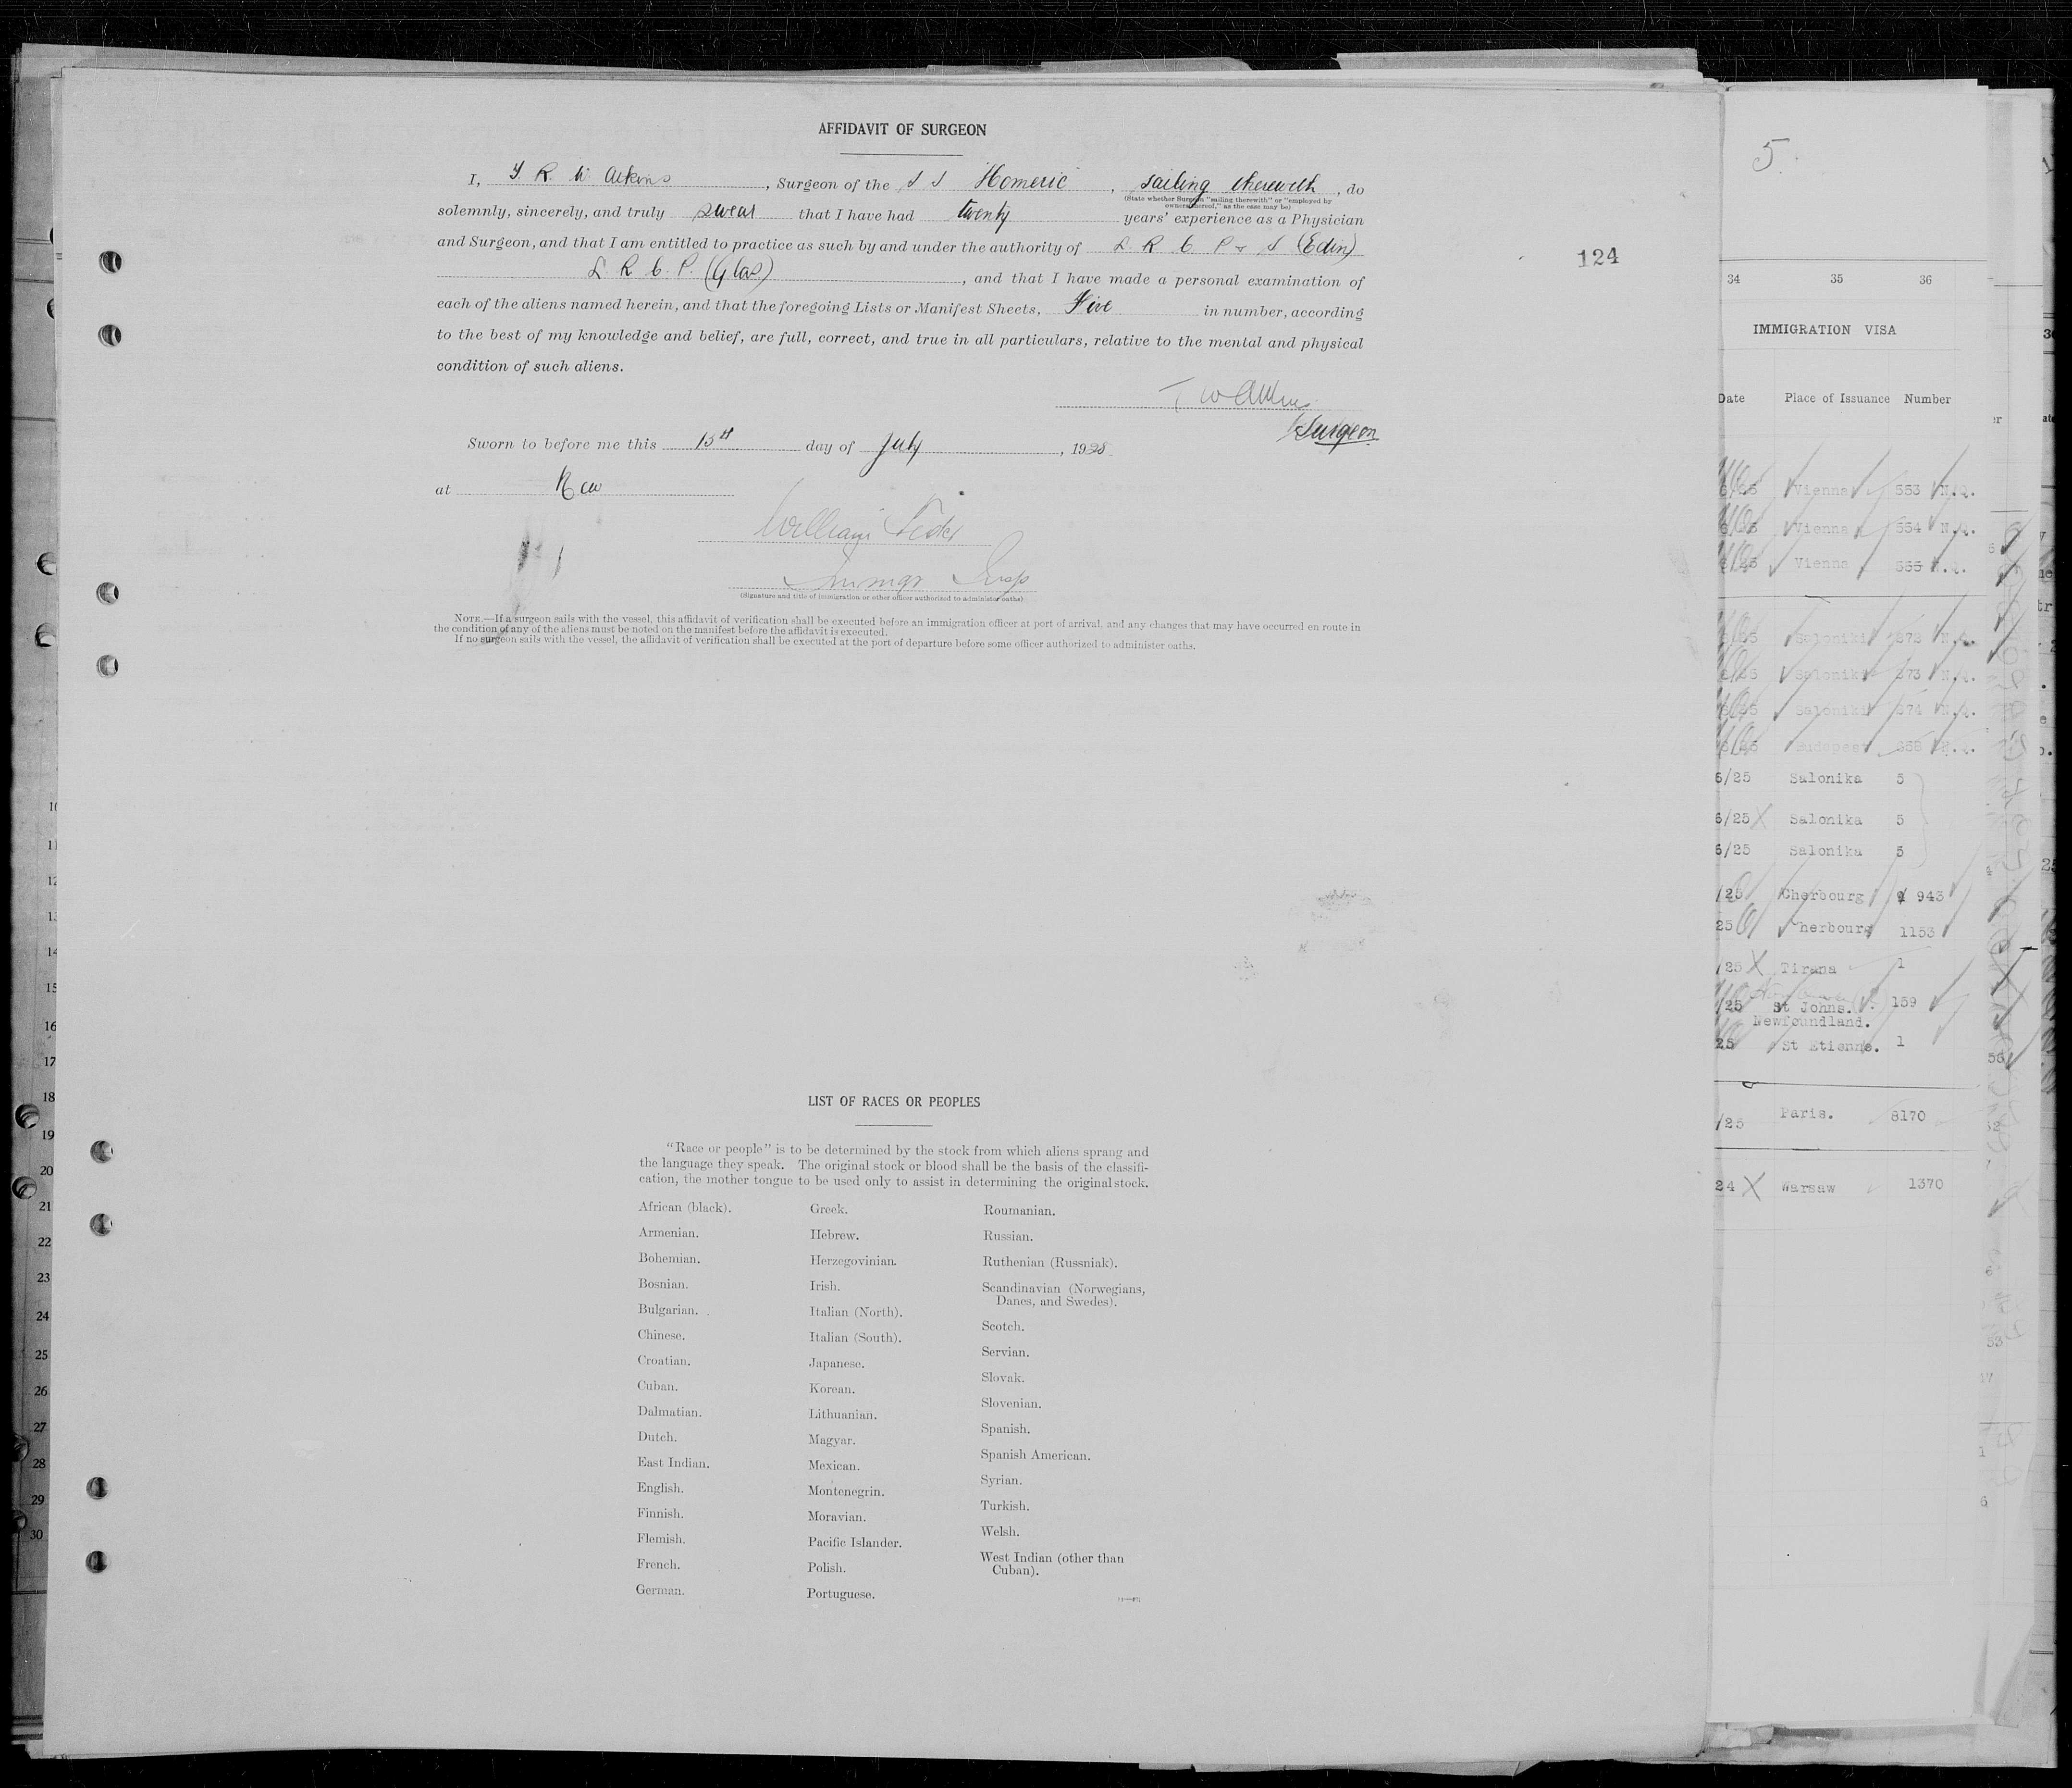 AFFIDAVIT OF SURGEON
I, R W Atkins, Surgeon of the S S Homeric, sailing therewith, do
(State whether Surgeon "sailing therewith" or "employed by
owners thereof," as the case may be)
solemnly, sincerely, and truly swear that I have had twenty years' experience as a Physician
and Surgeon, and that I am entitled to practice as such by and under the authority of L. R. C. P & S (Edin)
L R C. P. (Glas), and that I have made a personal examination of
each of the aliens named herein, and that the foregoing Lists or Manifest Sheets, Five in number, according
to the best of my knowledge and belief, are full, correct, and true in all particulars, relative to the mental and physical
condition of such aliens.
Surgeon
Sworn to before me this 15th day of July, 192
at
William
Immgr Insp
(Signature and title of immigration or other officer authorized to administer oaths)
NOTE.—If a surgeon sails with the vessel, this affidavit of verification shall be executed before an immigration officer at port of arrival, and any changes that may have occurred en route in
the condition of any of the aliens must be noted on the manifest before the affidavit is executed.
If no surgeon sails with the vessel, the affidavit of verification shall be executed at the port of departure before some officer authorized to administer oaths.
124
LIST OF RACES OR PEOPLES
"Race or people" is to be determined by the stock from which aliens sprang and
the language they speak. The original stock or blood shall be the basis of the classifi-
cation, the mother tongue to be used only to assist in determining the original stock.
African (black).
Armenian.
Bohemian.
Bosnian.
Bulgarian.
Chinese.
Croatian.
Cuban.
Dalmatian.
Dutch.
East Indian.
English.
Finnish.
Flemish.
French.
German.
Greek.
Hebrew.
Herzegovinian.
Irish.
Italian (North).
Italian (South).
Japanese.
Korean.
Lithuanian.
Magyar.
Mexican.
Montenegrin.
Moravian.
Pacific Islander.
Polish.
Portuguese.
Roumanian.
Russian.
Ruthenian (Russniak).
Scandinavian (Norwegians,
Danes, and Swedes).
Scotch.
Servian.
Slovak.
Slovenian.
Spanish.
Spanish American.
Syrian.
Turkish.
Welsh.
West Indian (other than
Cuban).
5.
34 35 36
IMMIGRATION VISA
Date Place of Issuance Number
Vienna 553 N.Q.
Vienna 554 N.Q.
Vienna 555 N.Q.
Saloniki N.Q.
Saloniki 373 N.Q.
Saloniki 374 N.Q.
Budapest
6/25 Salonika 5
6/25 Salonika 5
6/25 Salonika 5
/25 Cherbourg 943
25 herbourg 1153
/25 Tirana 1
/25 St Johns. 159
Newfoundland.
25 St Etienne. 1
/25 Paris. 8170
24 Warsaw 1370
11
12
13
14
15
16
17
18
19
20
21
22
23
24
25
26
27
28
29
30